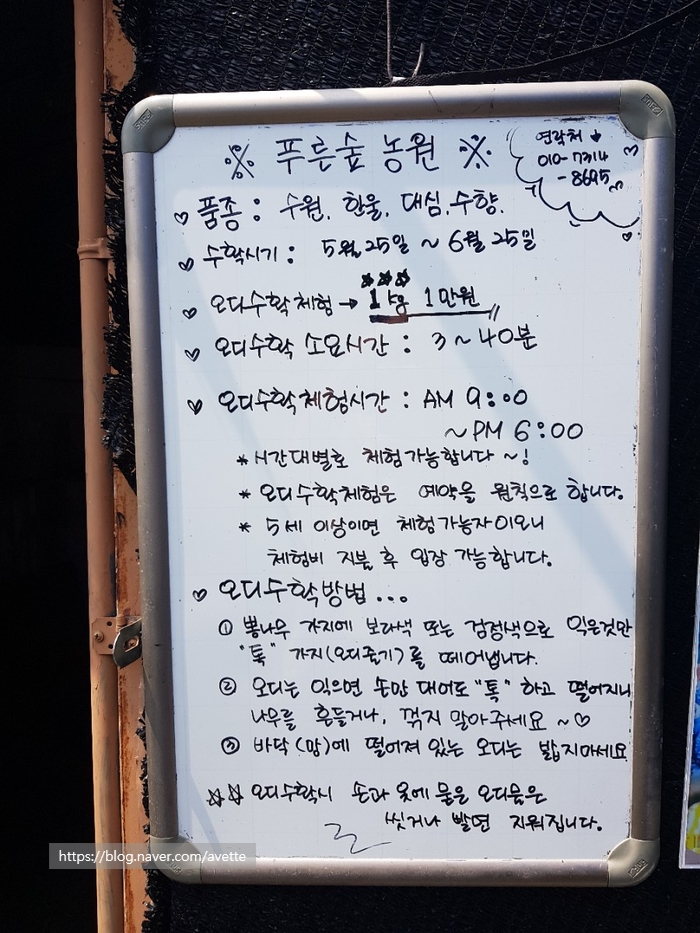 ※ 푸른숲 농원 ※
연락처 ↓
010-7314
-8695
♡ 품종 : 수원, 한울, 대심, 수향.
♡ 수확시기 : 5월 25일 ~ 6월 25일
♡ 오디수확체험 → 1kg 1만원
♡ 오디수확 소요시간 : 3~40분
♡ 오디수확체험시간 : AM 9:00
~PM 6:00
* 시간대별로 체험가능합니다~!
* 오디수확체험은 예약을 원칙으로 합니다.
* 5세 이상이면 체험가능자이오니
체험비 지불 후 입장 가능합니다.
♡ 오디수확방법...
① 뽕나무 가지에 보라색 또는 검정색으로 익은것만
"톡" 가지(오디줄기)를 떼어냅니다.
② 오디는 익으면 손만 대어도 "톡" 하고 떨어지니
나무를 흔들거나, 꺾지 말아주세요 ~♡
③ 바닥(망)에 떨어져 있는 오디는 밟지마세요
☆☆ 오디수확시 손과 옷에 물은 오디물은
씻거나 빨면 지워집니다.
https://blog.naver.com/avette